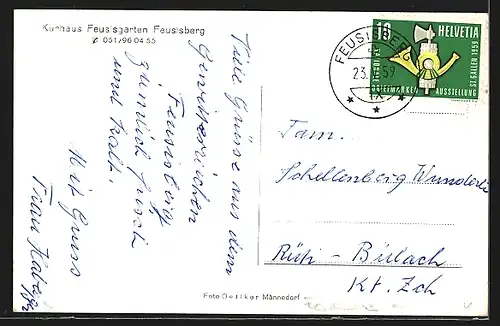 Kurhaus Feusisgarten Feusisberg
✆ 051/96 04 55
Viele Grüsse aus dem
Gewitterreichen
Feusisberg
ziemlich frisch
und kalt.
Mit Gruss
Frau
FEUSISBERG
23. 59
IX
10 HELVETIA
BRIEFMARKEN AUSSTELLUNG ST. GALLEN 1959
Fam.
Schellenberg Wunderli
Rüti - Bülach
Kt. Zch
Foto Oetiker Männedorf